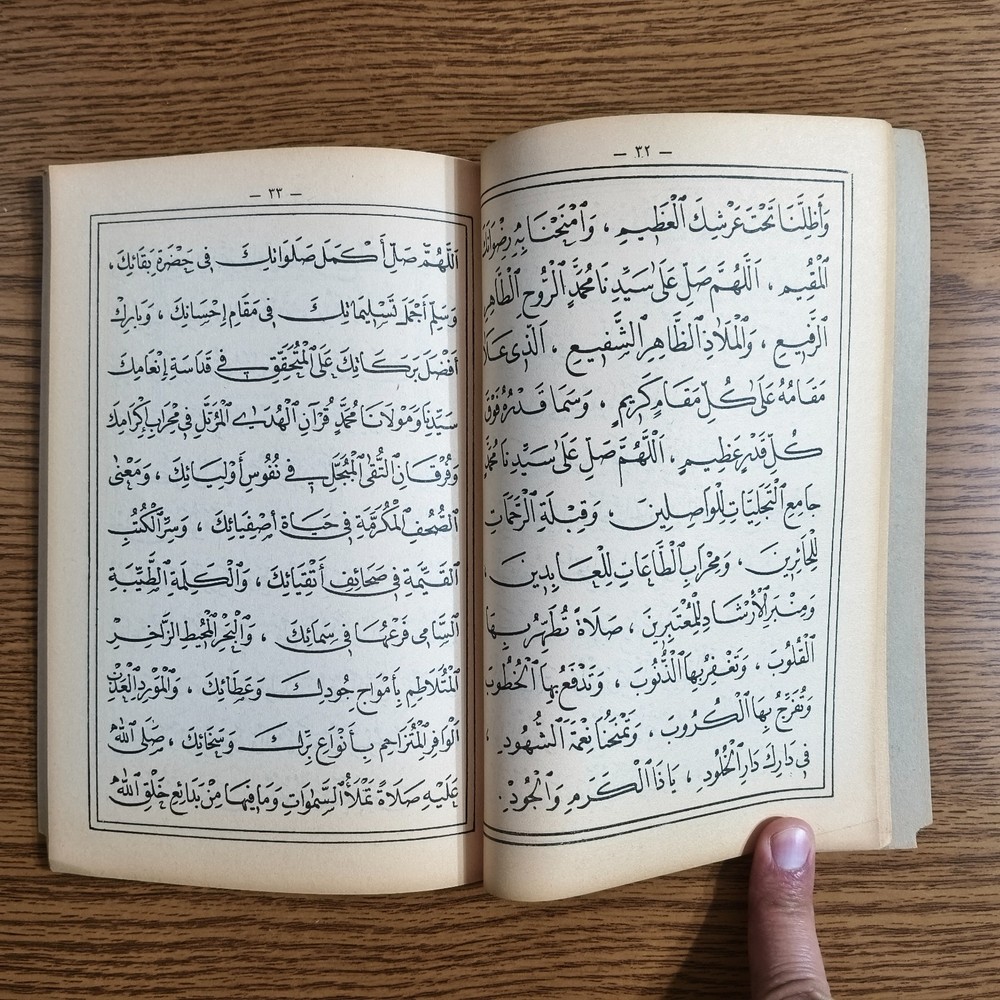 — ٣٢ —
وَأَظِلَّنَا تَحْتَ عَرْشِكَ ٱلْعَظِيمِ ، وَٱمْنَحْنَا بِهِ رِضْوَانَكَ
ٱلْمُقِيمِ ، اَللَّهُمَّ صَلِّ عَلَى سَيِّدِنَا مُحَمَّدٍ ٱلرُّوحِ ٱلطَّاهِرِ
ٱلرَّفِيعِ ، وَٱلْمَلَاذِ ٱلظَّاهِرِ ٱلشَّفِيعِ ، ٱلَّذِى عَلَا
مَقَامُهُ عَلَى كُلِّ مَقَامٍ كَرِيمٍ ، وَسَمَا قَدْرُهُ فَوْقَ
كُلِّ قَدْرٍ عَظِيمٍ ، اَللَّهُمَّ صَلِّ عَلَى سَيِّدِنَا مُحَمَّدٍ
جَامِعِ ٱلتَّجَلِّيَّاتِ لِلْوَاصِلِينَ ، وَقِبْلَةِ ٱلرَّحَمَاتِ
لِلْحَائِرِينَ ، وَمِحْرَابِ ٱلطَّاعَاتِ لِلْعَابِدِينَ ،
وَمِنْبَرِ ٱلْإِرْشَادِ لِلْمُعْتَبِرِينَ ، صَلَاةً تُطَهِّرُ بِهَا
ٱلْقُلُوبَ ، وَتَغْفِرُ بِهَا ٱلذُّنُوبَ ، وَتَدْفَعُ بِهَا ٱلْخُطُوبَ
وَتُفَرِّجُ بِهَا ٱلْكُرُوبَ ، وَتَمْنَحُنَا نِعْمَةَ ٱلشُّهُودِ ،
فِى دَارِكَ دَارِ ٱلْخُلُودِ ، يَاذَا ٱلْكَرَمِ وَٱلْجُودِ .
— ٣٣ —
اَللَّهُمَّ صَلِّ أَكْمَلَ صَلَوَاتِكَ فِى حَضْرَةِ بَقَائِكَ ،
وَسَلِّمْ أَجْمَلَ تَسْلِيمَاتِكَ فِى مَقَامِ إِحْسَانِكَ ، وَبَارِكْ
أَفْضَلَ بَرَكَاتِكَ عَلَى ٱلْمُتَحَقِّقِ فِى قَدَاسَةِ إِنْعَامِكَ
سَيِّدِنَا وَمَوْلَانَا مُحَمَّدٍ قُرْآنِ ٱلْهُدَى ٱلْمُرَتَّلِ فِى مِحْرَابِ إِكْرَامِكَ
وَفُرْقَانِ ٱلتُّقَى ٱلْمُبَجَّلِ فِى نُفُوسِ أَوْلِيَائِكَ ، وَمَعْنَى
ٱلصُّحُفِ ٱلْمُكَرَّمَةِ فِى حَيَاةِ أَصْفِيَائِكَ ، وَسِرِّ ٱلْكُتُبِ
ٱلْقَيِّمَةِ فِى صَحَائِفِ أَتْقِيَائِكَ ، وَٱلْكَلِمَةِ ٱلطَّيِّبَةِ
ٱلسَّامِى فَرْعُهَا فِى سَمَائِكَ ، وَٱلْبَحْرِ ٱلْمُحِيطِ ٱلزَّاخِرِ
ٱلْمُتَلَاطِمِ بِأَمْوَاجِ جُودِكَ وَعَطَائِكَ ، وَٱلْمَوْرِدِ ٱلْعَذْبِ
ٱلْوَافِرِ ٱلْمُتَزَاحِمِ بِأَنْوَاعِ بِرِّكَ وَسَخَائِكَ ، صَلَّى ٱللهُ
عَلَيْهِ صَلَاةً تَمْلَأُ ٱلسَّمٰوَاتِ وَمَا فِيهَا مِنْ بَدَائِعِ خَلْقِ ٱللهِ